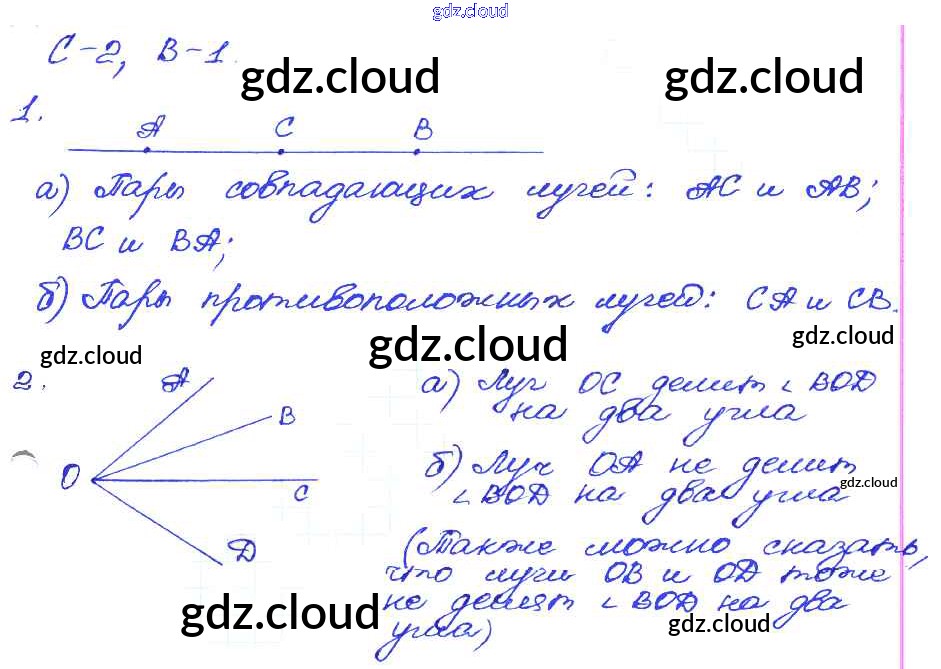 gdz.cloud
С-2, В-1.
gdz.cloud gdz.cloud
1.
A C B
а) Пары совпадающих лучей: AC и AB;
BC и BA;
б) Пары противоположных лучей: CA и CB.
gdz.cloud gdz.cloud gdz.cloud
2.
A
B
O
C
D
а) Луч OC делит ∠ BOD
на два угла
б) Луч OA не делит
∠ BOD на два угла
gdz.cloud
(Также можно сказать,
что лучи OB и OD тоже
не делят ∠ BOD на два
угла)
gdz.cloud gdz.cloud